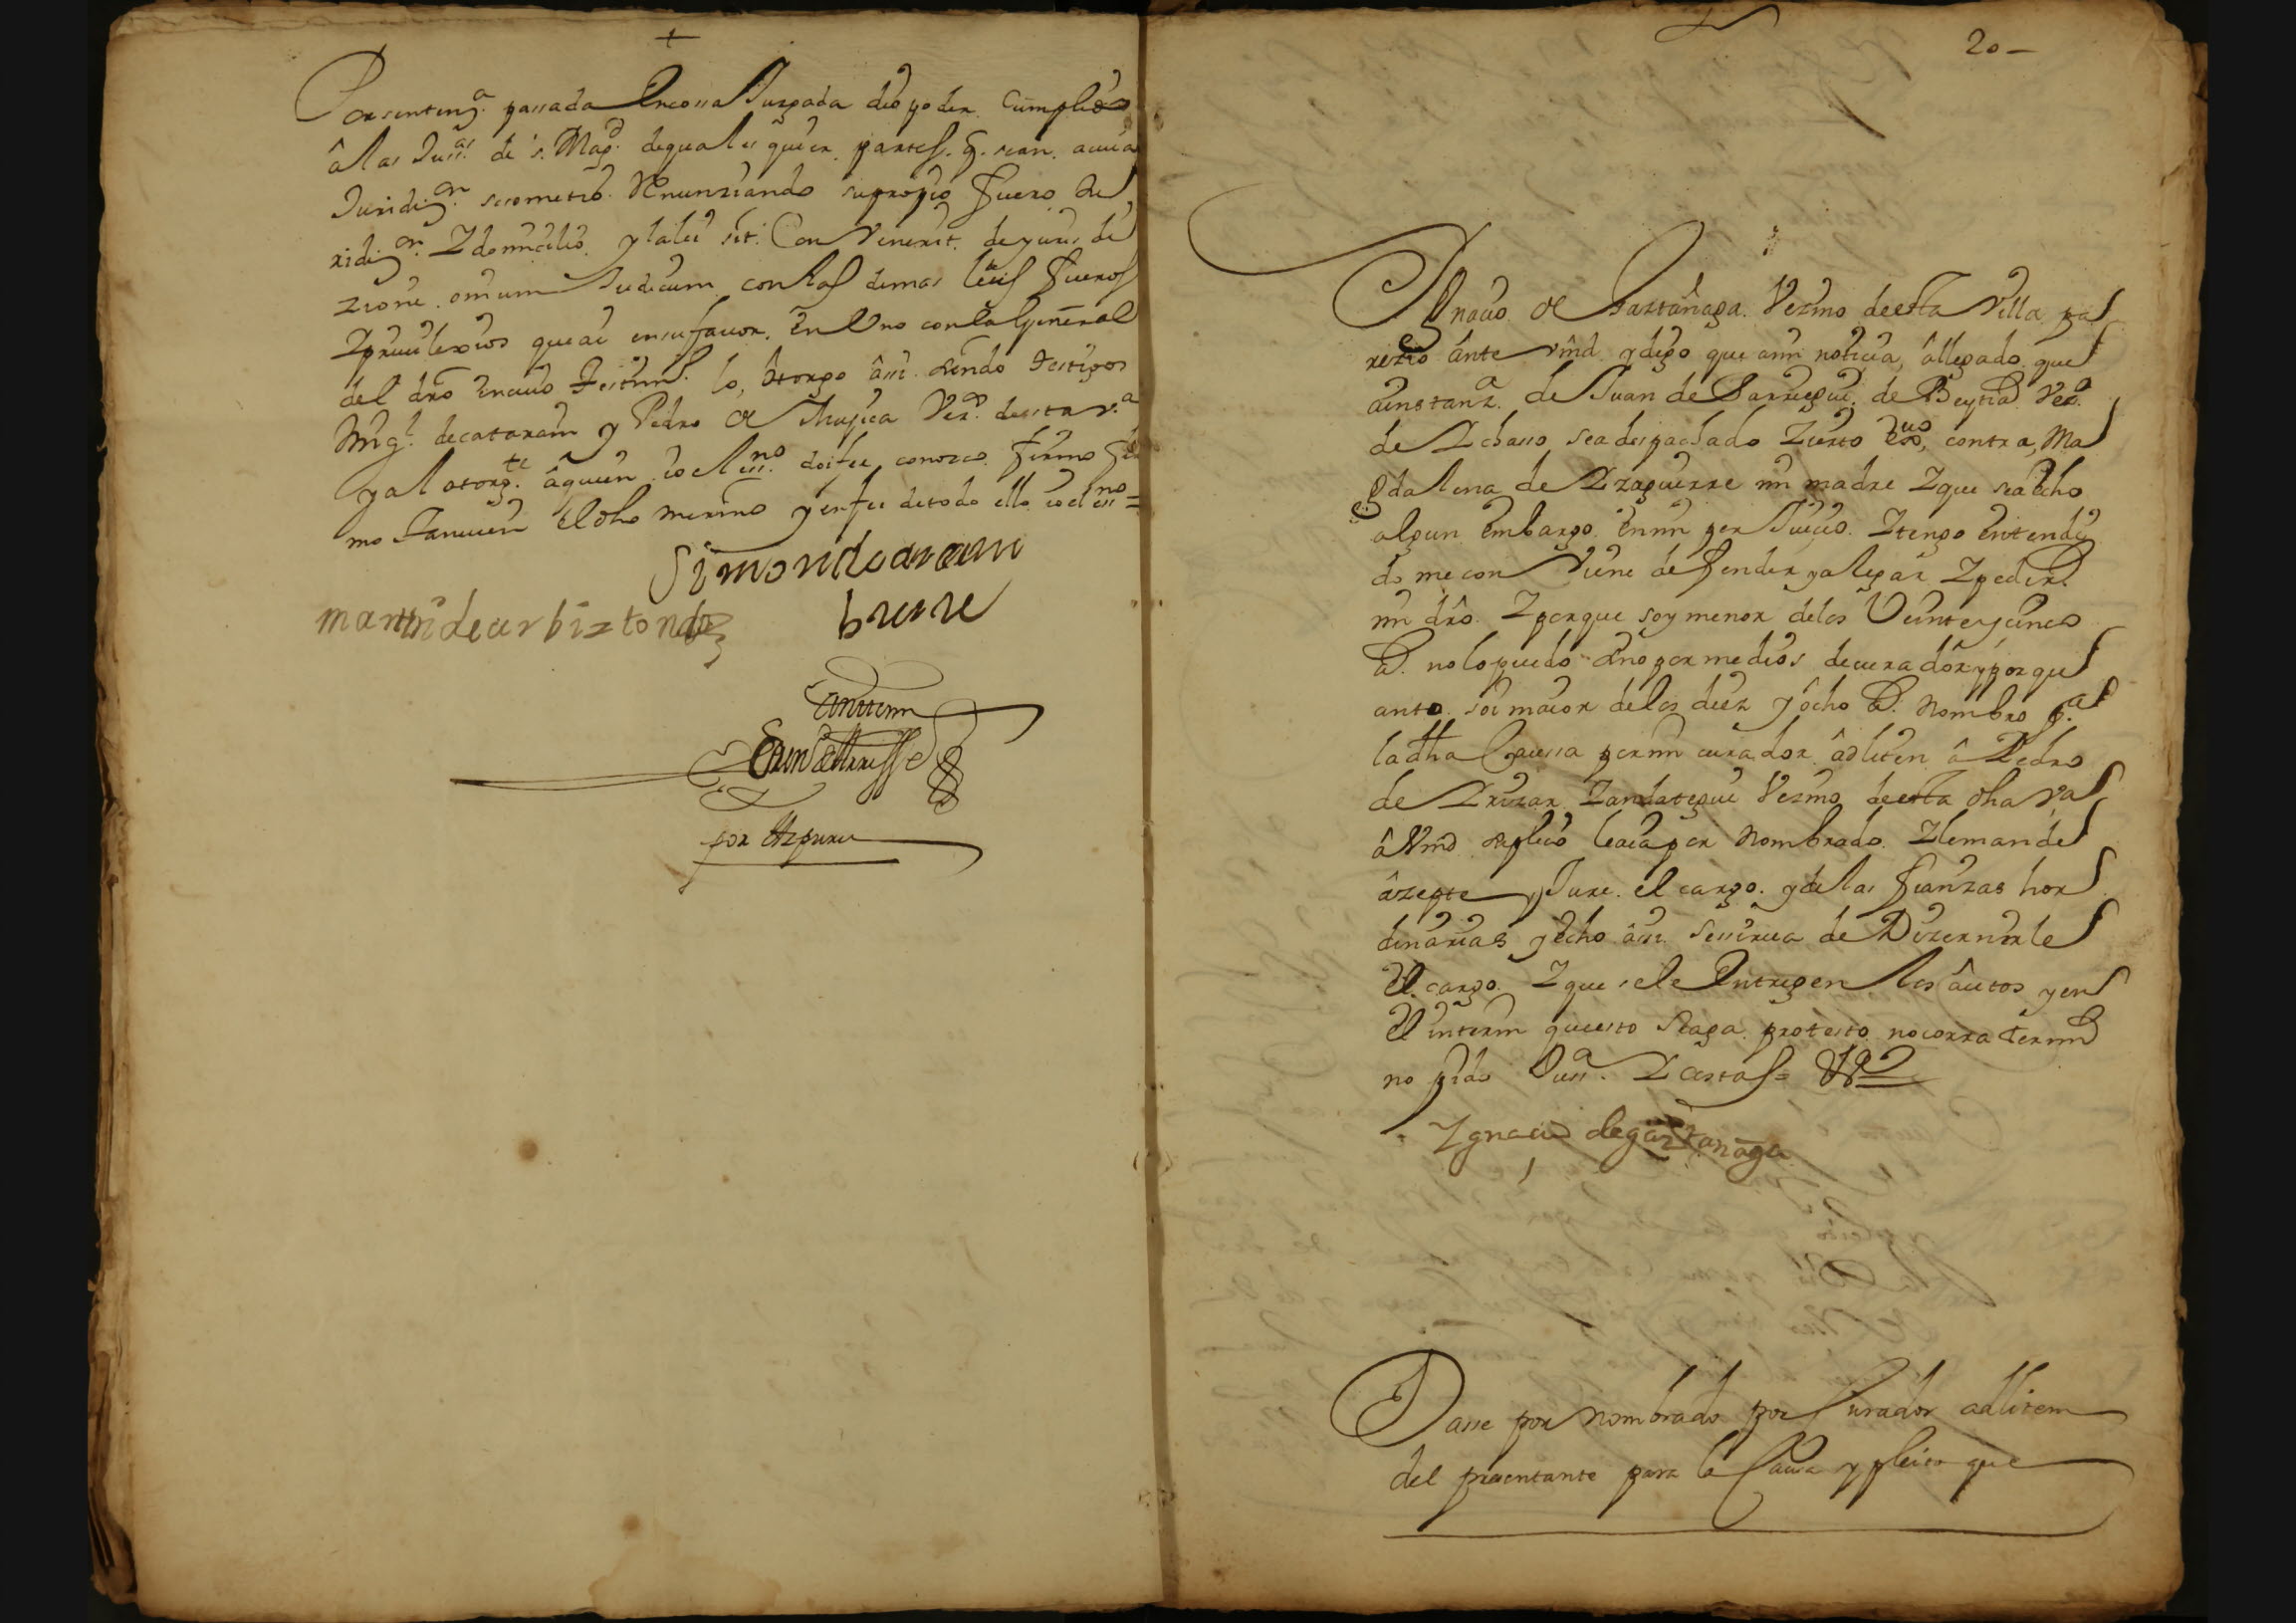 +
Por sentenzª. passada En cossa Juzgada dio poder Cumplido
â las Jussas. de s. Magd. de quales quier partes. q. sean. a cuia
Juridizon. se sometio. Renunziando su propio fuero Ju
ridizon. Y domicilio y la lei sit. Con Venerit. de juris di
zione. omnium Judicum con las demas leies fueros
Y previlexios que ai en su favor. En Uno con la General
del dro En cuio testimo. lo, ôtorgo âssi siendo testigos
Migl. de catarain y Pedro de Mujica Vezos. de esta vª
y al otorgte. â quien io el essno. doi fee conozco firmo
mo tanvien El dho merino y en fee de todo ello io el essno =
Simon de aram
buru
martin de arbiztondo
Ante mi
por Azpuru
20 –
Ygnacio de Gaztañaga. Vezino de esta Villa pa
rezco ânte vmd. y digo que a mi noticia, â llegado que
a instanzª. de Juan de Larregui de Beytia Vezº.
de Achasso, sea despachado Zierto exvo, contra, Ma
gdalena de Yzaguirre mi madre Y que sea êcho
algun Embargo En mi per Juicio. Y tengo Entendi
do me con Viene defender y alegar Y pedir
mi dro. Y porque soy menor de los Veinte y cinco
as. no lo puedo sino por medios de curador y por que
anto soi maior de los diez y ôcho as. Nombro pª
la dha Caussa por mi curador âd liten â Pedro
de Yrizar Yandategui Vezino de esta dha va
â Vmd suplico le aia por Nombrado. Y le mande
âzepte y Jure el cargo. y de las fianzas hor
dinarias y êcho âssi se sirva de Dizernirle
El cargo. Y que se le Entregen los âutos y en
El interin que esto se aga protesto no corra termi
no pido Jussª. Y costas =
Ygnacio de gaztanaga
Dasse por nombrado por Curador ad litem
del pressentante para la Caussa y pleito que